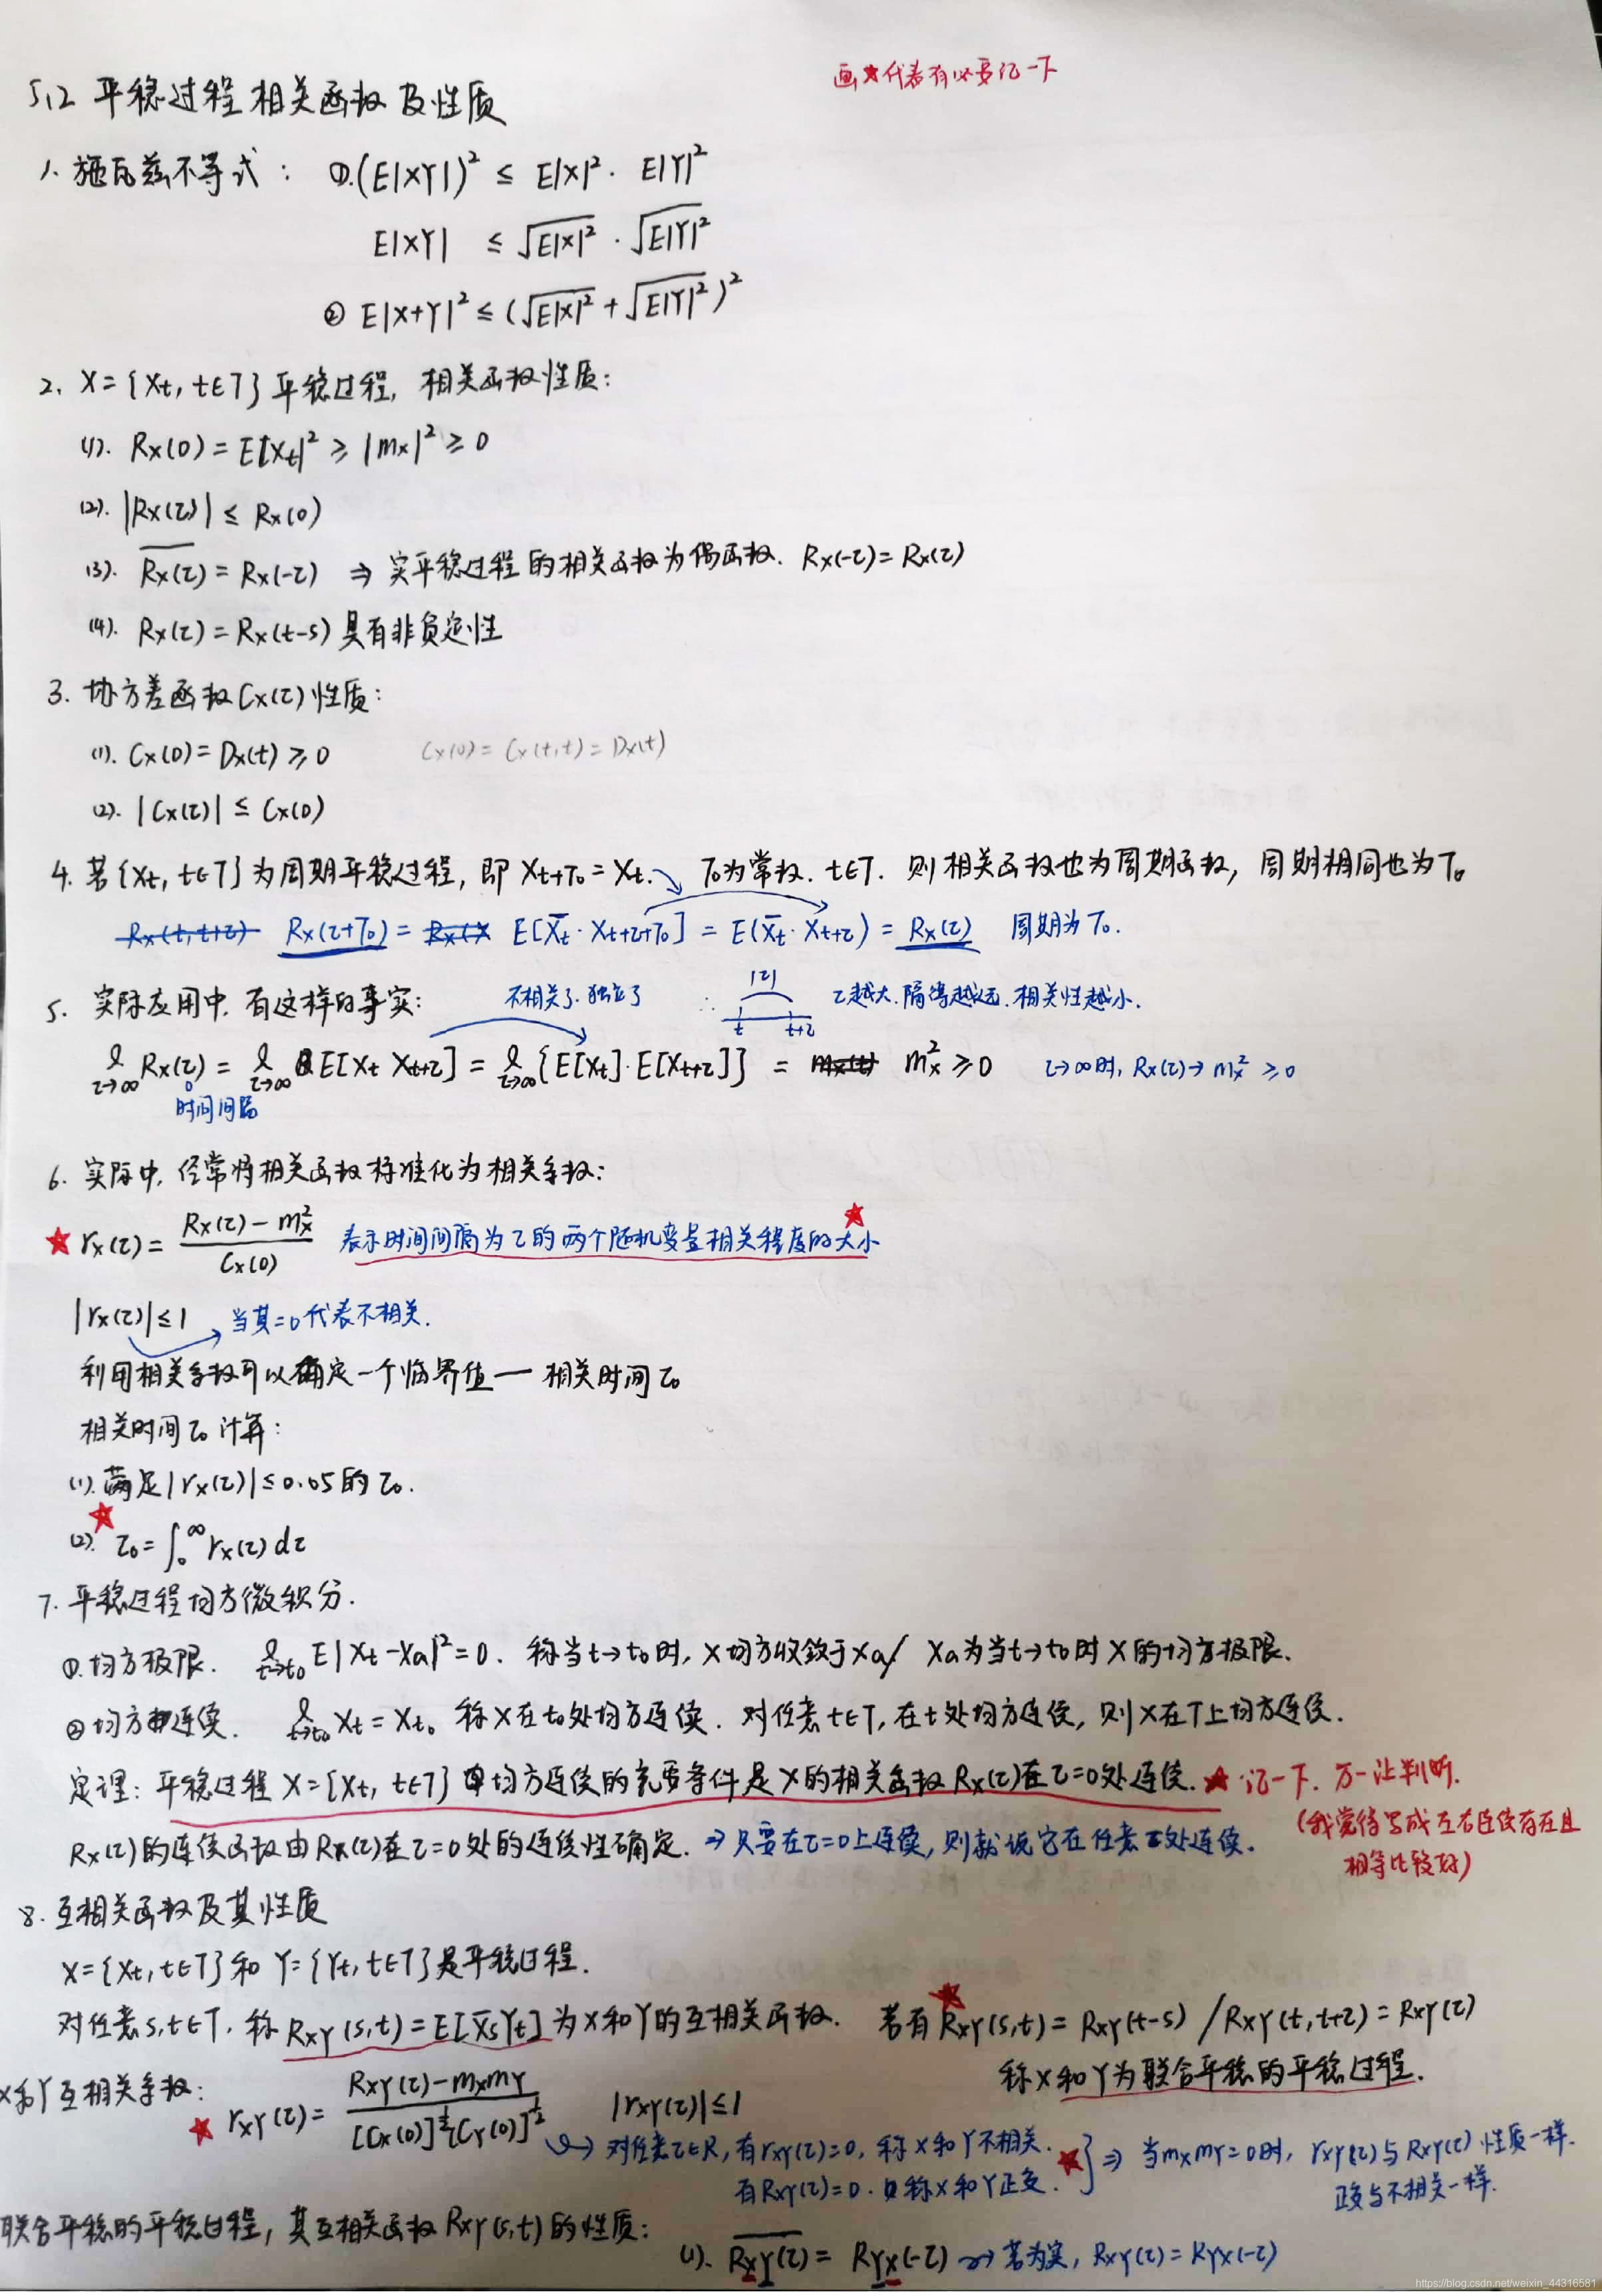 画★代表有必要记一下
5.2 平稳过程相关函数及性质
1. 施瓦兹不等式: ①.(E|XY|)² ≤ E|X|²· E|Y|²
E|XY| ≤ √E|X|² · √E|Y|²
② E|X+Y|² ≤ (√E|X|² + √E|Y|²)²
2. X={Xt, t∈T}平稳过程, 相关函数性质:
(1). Rx(0) = E|Xt|² ≥ |mx|² ≥ 0
(2). |Rx(τ)| ≤ Rx(0)
(3). \overline{Rx(τ)} = Rx(-τ) ⇒ 实平稳过程的相关函数为偶函数. Rx(-τ)=Rx(τ)
(4). Rx(τ)=Rx(t-s)具有非负定性
3. 协方差函数Cx(τ)性质:
(1). Cx(0)=Dx(t)≥0 Cx(0)=Cx(t,t)=Dx(t)
(2). |Cx(τ)| ≤ Cx(0)
4. 若{Xt, t∈T}为周期平稳过程, 即 Xt+T₀ = Xt. T₀为常数. t∈T. 则相关函数也为周期函数, 周期相同也为T₀
Rx(t,t+τ) Rx(τ+T₀) = Rx(X E[X̄t·Xt+τ+T₀] = E(X̄t·Xt+τ) = Rx(τ) 周期为T₀.
5. 实际应用中, 有这样的事实: 不相关了.独立了 ∴ |τ| t t+τ τ越大.隔得越远.相关性越小.
l τ→∞ Rx(τ) = l τ→∞ E[Xt Xt+τ] = l τ→∞ {E[Xt]·E[Xt+τ]} = mx(t) mx² ≥0 τ→∞时, Rx(τ)→mx² ≥0
时间间隔
6. 实际中, 经常将相关函数标准化为相关系数:
★ rx(τ) = \frac{Rx(τ)-mx²}{Cx(0)} 表示时间间隔为τ的两个随机变量相关程度的大小 ★
|rx(τ)|≤1 当其=0代表不相关.
利用相关系数可以确定一个临界值一 相关时间τ₀
相关时间τ₀计算:
(1).满足|rx(τ)|≤0.05的τ₀.
(2). ★ τ₀=∫₀^∞ rx(τ)dτ
7. 平稳过程均方微积分.
①.均方极限. l t→t₀ E|Xt-Xa|²=0. 称当t→t₀时, X均方收敛于Xa/ Xa为当t→t₀时X的均方极限.
②均方连续. l t→t₀ Xt = Xt₀ 称X在t₀处均方连续. 对任意t∈T, 在t处均方连续, 则X在T上均方连续.
定理: 平稳过程 X={Xt, t∈T} 均方连续的充要条件是X的相关函数Rx(τ)在τ=0处连续. ★ 记一下. 万一让判断.
(我觉得写成左右连续存在且
Rx(τ)的连续函数由Rx(τ)在τ=0处的连续性确定. → 只要在τ=0上连续, 则就说它在任意τ处连续.
相等比较好)
8. 互相关函数及其性质
X={Xt, t∈T}和 Y={Yt, t∈T}是平稳过程.
对任意s,t∈T. 称 Rxy(s,t)=E[X̄sYt]为X和Y的互相关函数. 若有 ★ Rxy(s,t) = Rxy(t-s) / Rxy(t,t+τ)=Rxy(τ)
称X和Y为联合平稳的平稳过程.
X和Y互相关系数: ★ rxy(τ) = \frac{Rxy(τ)-mxmy}{[Cx(0)]^{1/2}[Cy(0)]^{1/2}} |rxy(τ)|≤1
→ 对任意τ∈R, 有rxy(τ)=0, 称X和Y不相关. ★ } ⇒ 当mxmy=0时, rxy(τ)与Rxy(τ)性质一样.
有Rxy(τ)=0. 称X和Y正交. 正交与不相关一样.
联合平稳的平稳过程, 其互相关函数Rxy(s,t)的性质:
(1). \overline{Rxy(τ)} = Ryx(-τ) → 若为实, Rxy(τ)=Ryx(-τ)
https://blog.csdn.net/weixin_44316581